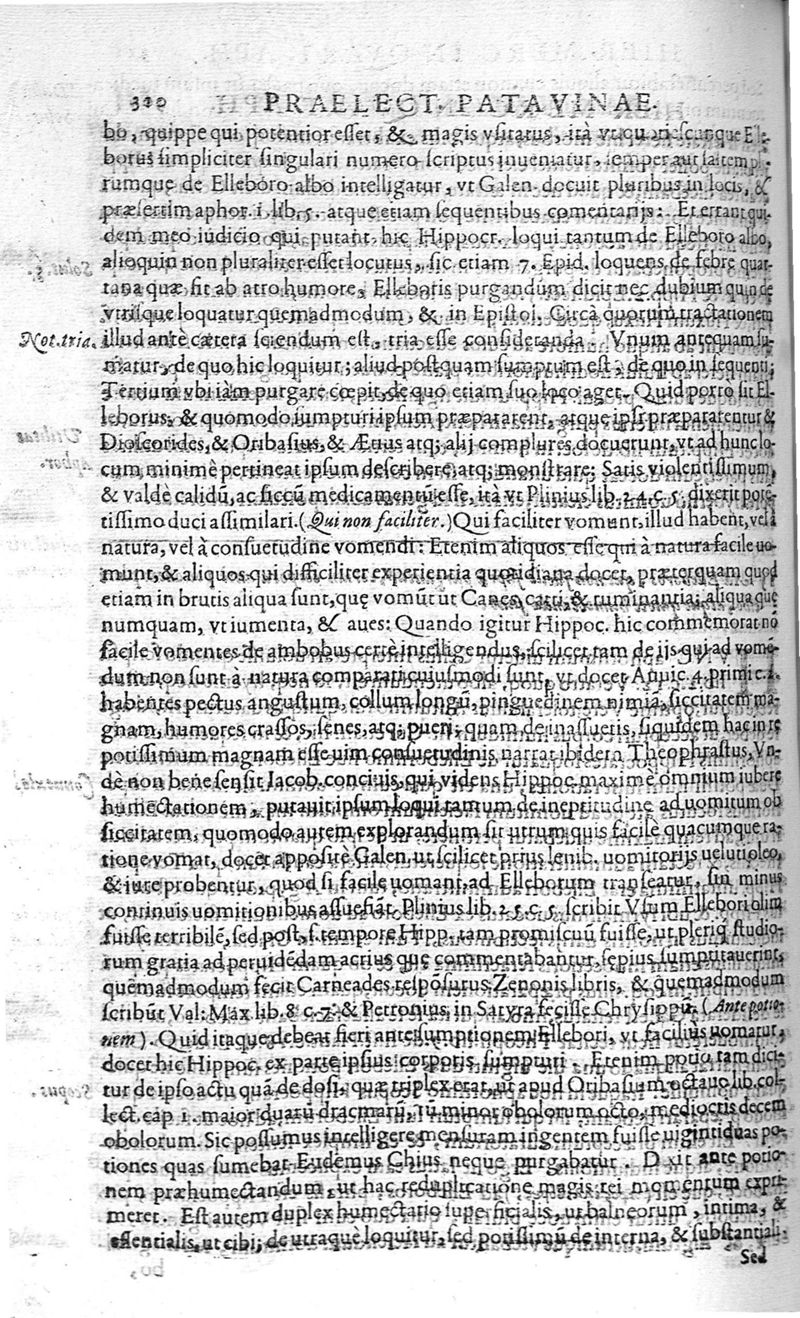 320 PRAELECT. PATAVINAE.
bo, quippe qui potentior esset, & magis vsitatus, ità vt quotiescunque Ele-
borus simpliciter singulari numero scriptus inueniatur, semper aut saltem plu-
rumque de Elleboro albo intelligatur, vt Galen. docuit pluribus in locis, &
præsertim aphor. 1. lib. 5. atque etiam sequentibus comentarijs: Et errant qui-
dem meo iudicio qui putant hic Hippocr. loqui tantum de Elleboro albo,
alioquin non pluraliter esset locutus, sic etiam 7. Epid. loquens de febre quar-
tana quæ fit ab atro humore, Elleboris purgandum dicit nec dubium quin de
vtrisque loquatur quemadmodum, & in Epistol. Circà quorum tractationem
Not. tria. illud antè cætera sciendum est, tria esse consideranda. Vnum antequam su-
matur, de quo hic loquitur; aliud postquam sumptum est, de quo in sequenti;
Tertium vbi iàm purgare cœpit, de quo etiam suo loco aget. Quid porro sit El-
leborus, & quomodo sumpturi ipsum præpararent, atque ipsi præpararentur &
Dioscorides, & Oribasius, & Ætius atq; alij complures docuerunt, vt ad hunc lo-
cum minimè pertineat ipsum describere, atq; monstrare: Satis violentissimum,
& valdè calidũ, ac siccũ medicamentũ esse, ità vt Plinius lib. 24. c. 5. dixerit pote-
tissimo duci assimilari. (Qui non faciliter.) Qui faciliter vomunt, illud habent, vel à
natura, vel à consuetudine vomendi: Etenim aliquos esse qui à natura facile uo-
munt, & aliquos qui difficiliter experientia quotidiana docet, præterquam quod
etiam in brutis aliqua sunt, quę vomũt ut Canes, catti, & ruminantia; aliqua quę
numquam, vt iumenta, & aues: Quando igitur Hippoc. hic commemorat nõ
facilè vomentes de ambobus certè intelligendus, scilicet tam de ijs qui ad vomẽ-
dum non sunt à natura comparati cuiusmodi sunt, vt docet Auuic. 4. primi c.
habentes pectus angustum, collum longũ, pinguedinem nimiã, siccitatem ma-
gnam, humores crassos, senes, atq; pueri, quam de inassuetis, siquidem hac in re
potissimum magnam esse uim consuetudinis narrat ibidem Theophrastus, Vn-
dè non bene sensit Iacob. conciuis, qui videns Hippoc. maximè omnium iubere
humectationem, putauit ipsum loqui tantum de ineptitudine ad uomitum ob
siccitatem, quomodo autem explorandum sit utrum quis facile quacumque ra-
tione vomat, docet appositè Galen. ut scilicet prius lenib. uomitorijs uelut oleo,
& iure probentur, quod si facile uomant, ad Elleborum transeatur, sin minus
continuis uomitionibus assuefiãt. Plinius lib. 25. c. 5. scribit Vsum Ellebori olim
fuisse terribilẽ, sed post, s. tempore Hipp. tam promiscuũ fuisse, ut pleriq; studio-
rum gratia ad peruidẽdam acrius quę commentabantur, sępius sumptitauerint,
quẽmadmodum fecit Carneades resposurus Zenonis libris, & quemadmodum
scribũt Val: Max. lib. 8. c. 7. & Petronius in Satyra fecisse Chrysippũ. (Ante potio-
nem). Quid itaque debeat fieri ante sumptionem Ellebori, vt facilius uomatur,
docet hic Hippoc. ex parte ipsius corporis sumpturi. Etenim potio tam dici-
tur de ipso actu quã de dosi, quæ triplex erat, ut apud Oribasium octauo lib. col-
lect. cap 1. maior duarũ dracmarũ, Tũ minor obolorum octo, mediocris decem
obolorum. Sic possumus intelligere mensuram ingentem fuisse uigintiduas po-
tiones quas sumebat Eudemus Chius neque purgabatur. Dixit ante potio-
nem præhumectandum, ut hac reduplicatione magis rei momentum expri-
meret. Est autem duplex humectatio superficialis, ut balneorum, intima, &
essentialis, ut cibi; de utraquè loquitur, sed potissimũ de interna, & substantiali.
Sed